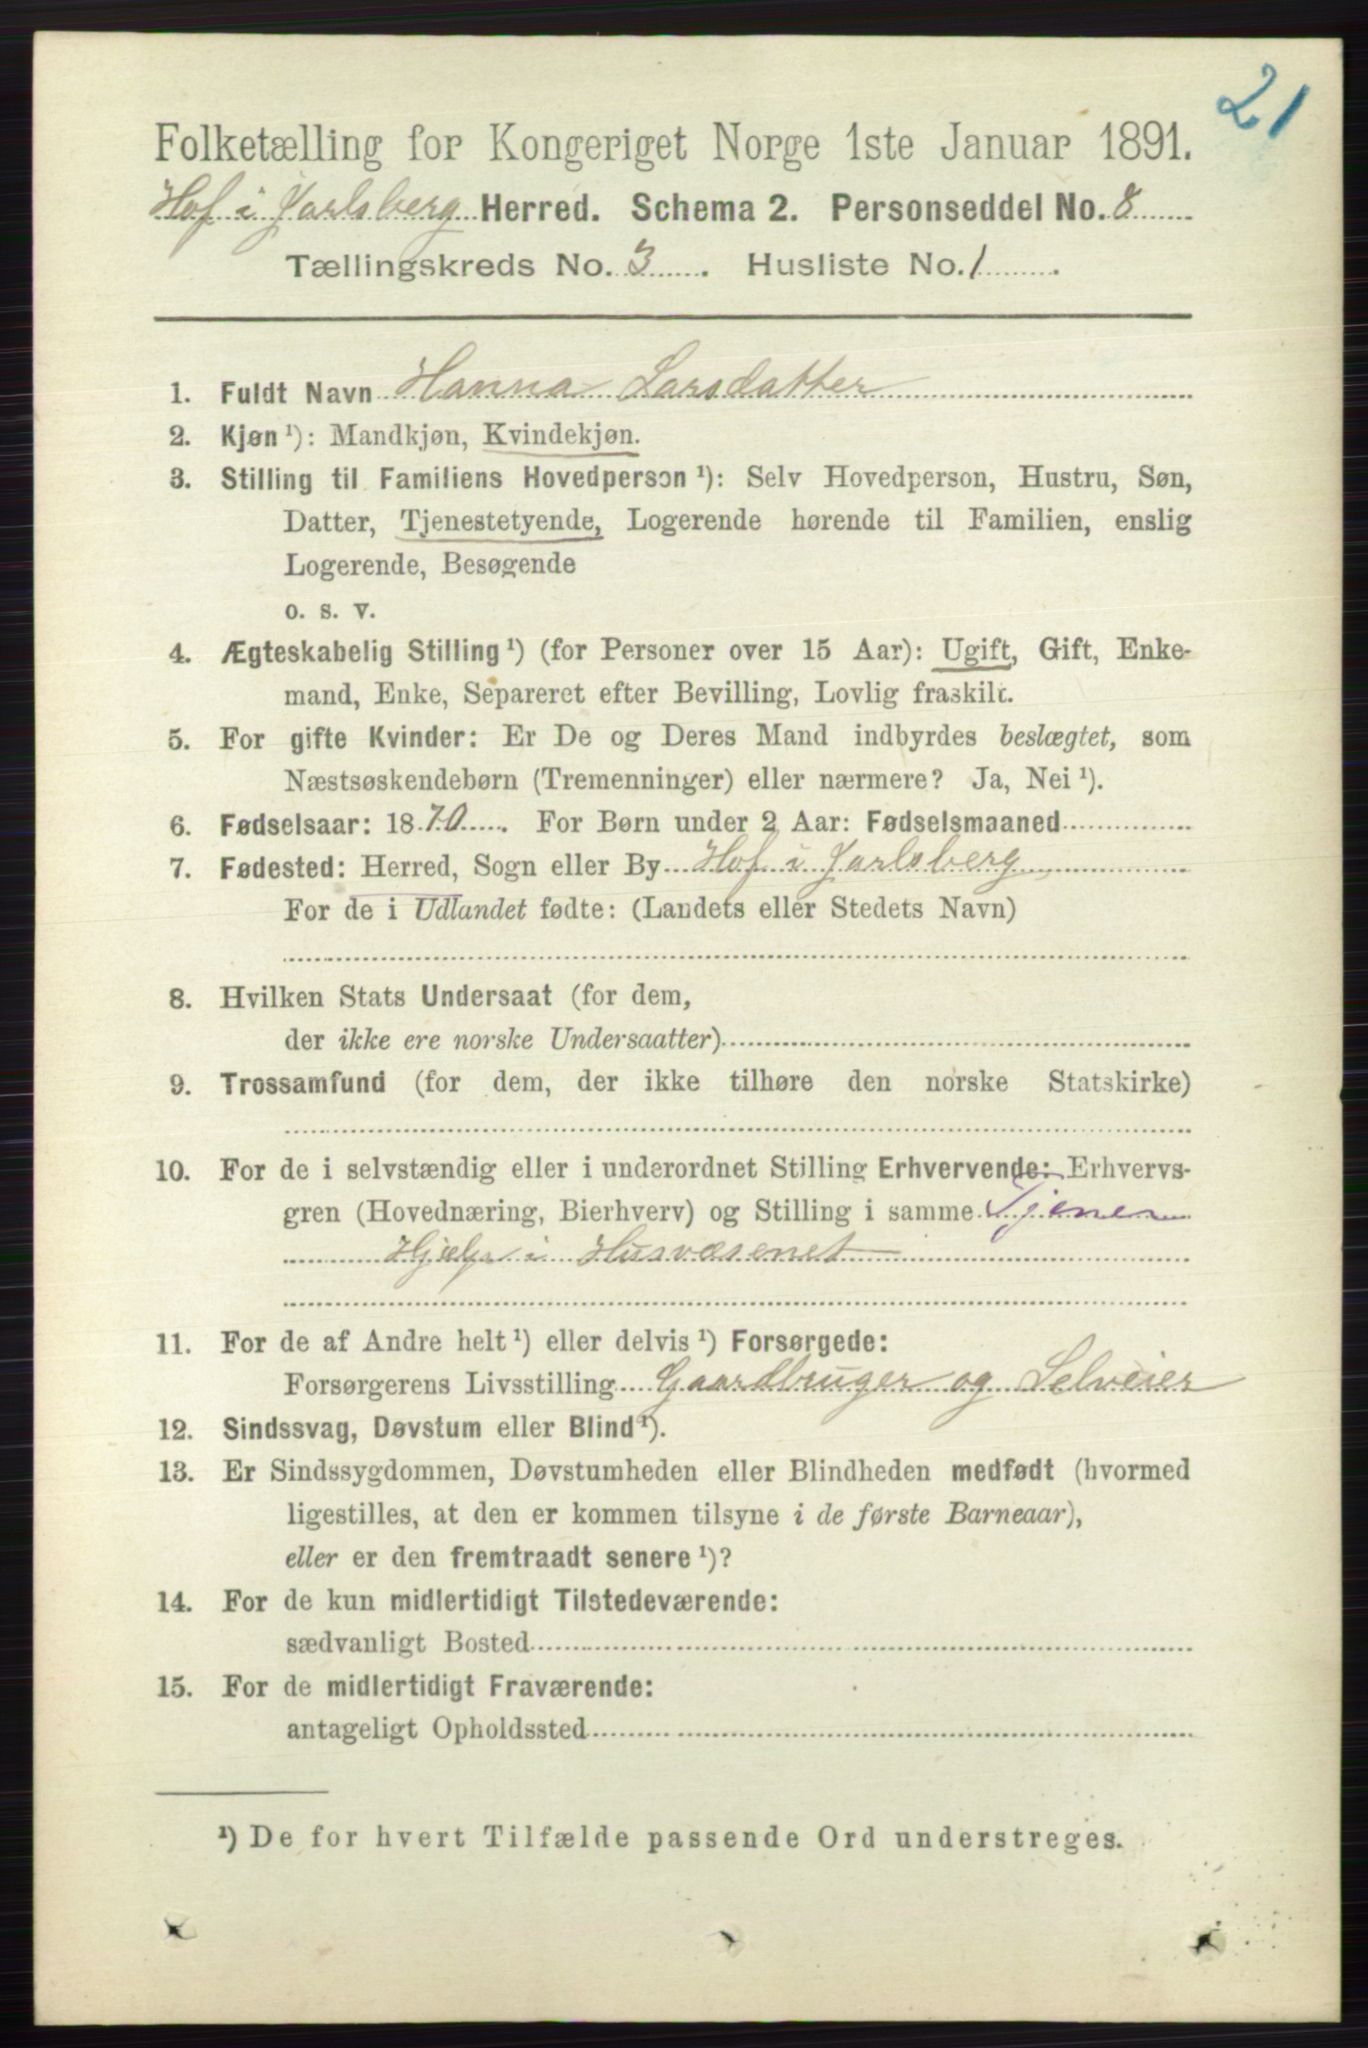 21
Folketælling for Kongeriget Norge 1ste Januar 1891.
Hof i Jarlsberg Herred. Schema 2. Personseddel No. 8
Tællingskreds No. 3. Husliste No. 1.
1. Fuldt Navn Hanna Larsdatter
2. Kjøn ¹): Mandkjøn, Kvindekjøn.
3. Stilling til Familiens Hovedperson ¹): Selv Hovedperson, Hustru, Søn,
Datter, Tjenestetyende, Logerende hørende til Familien, enslig
Logerende, Besøgende
o. s. v.
4. Ægteskabelig Stilling ¹) (for Personer over 15 Aar): Ugift, Gift, Enke-
mand, Enke, Separeret efter Bevilling, Lovlig fraskilt.
5. For gifte Kvinder: Er De og Deres Mand indbyrdes beslægtet, som
Næstsøskendebørn (Tremenninger) eller nærmere? Ja, Nei ¹).
6. Fødselsaar: 1870. For Børn under 2 Aar: Fødselsmaaned
7. Fødested: Herred, Sogn eller By Hof i Jarlsberg
For de i Udlandet fødte: (Landets eller Stedets Navn)
8. Hvilken Stats Undersaat (for dem,
der ikke ere norske Undersaatter)
9. Trossamfund (for dem, der ikke tilhøre den norske Statskirke)
10. For de i selvstændig eller i underordnet Stilling Erhvervende: Erhvervs-
gren (Hovednæring, Bierhverv) og Stilling i samme Tjener
Hjælp i Husvæsenet
11. For de af Andre helt ¹) eller delvis ¹) Forsørgede:
Forsørgerens Livsstilling Gaardbruger og Selveier
12. Sindssvag, Døvstum eller Blind ¹).
13. Er Sindssygdommen, Døvstumheden eller Blindheden medfødt (hvormed
ligestilles, at den er kommen tilsyne i de første Barneaar),
eller er den fremtraadt senere ¹)?
14. For de kun midlertidigt Tilstedeværende:
sædvanligt Bosted
15. For de midlertidigt Fraværende:
antageligt Opholdssted
¹) De for hvert Tilfælde passende Ord understreges.